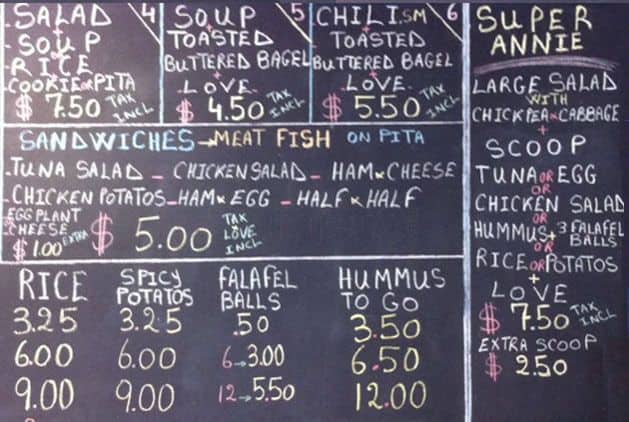 SALAD 4
SOUP
RICE
COOKIE OR PITA
$ 7.50 TAX INCL
SOUP 5
TOASTED
BUTTERED BAGEL
+
LOVE
$ 4.50 TAX INCL
CHILI.SM 6
+
TOASTED
BUTTERED BAGEL
+
LOVE
$ 5.50 TAX INCL
SANDWICHES → MEAT FISH ON PITA
-TUNA SALAD - CHICKEN SALAD - HAM & CHEESE
-CHICKEN POTATOS - HAM & EGG - HALF & HALF
EGG PLANT
CHEESE
$ 1.00 EXTRA
$ 5.00 TAX LOVE INCL
RICE SPICY POTATOS FALAFEL BALLS HUMMUS TO GO
3.25 3.25 .50 3.50
6.00 6.00 6→3.00 6.50
9.00 9.00 12→5.50 12.00
SUPER
ANNIE
LARGE SALAD
WITH
CHICKPEA & CABBAGE
+
SCOOP
TUNA OR EGG
OR
CHICKEN SALAD
OR
HUMMUS + 3 FALAFEL BALLS
OR
RICE OR POTATOS
+
LOVE
$ 7.50 TAX INCL
EXTRA SCOOP
$ 2.50